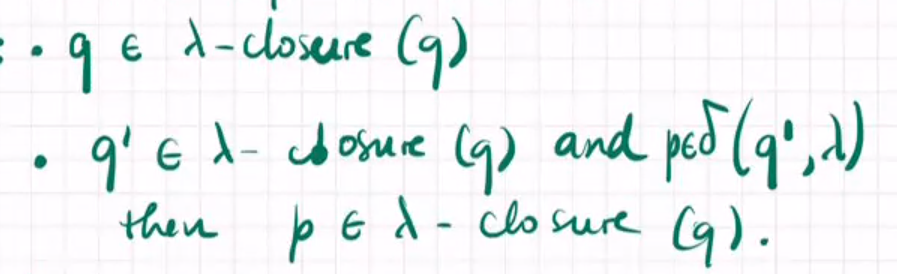 : • q ∈ λ-closure (q)
• q' ∈ λ- closure (q) and p∈δ(q',λ)
then p ∈ λ - closure (q).